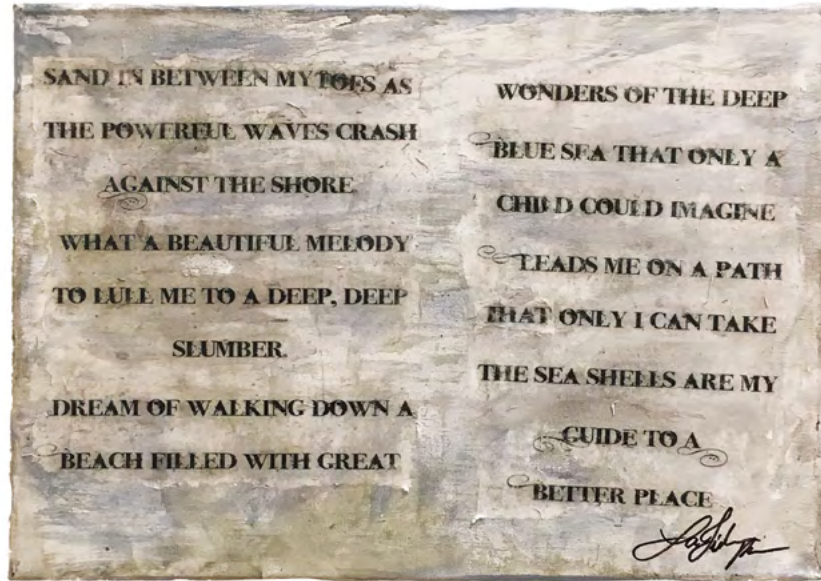 SAND IN BETWEEN MY TOES AS
THE POWERFUL WAVES CRASH
AGAINST THE SHORE.
WHAT A BEAUTIFUL MELODY
TO LULL ME TO A DEEP, DEEP
SLUMBER.
DREAM OF WALKING DOWN A
BEACH FILLED WITH GREAT
WONDERS OF THE DEEP
BLUE SEA THAT ONLY A
CHILD COULD IMAGINE
LEADS ME ON A PATH
THAT ONLY I CAN TAKE
THE SEA SHELLS ARE MY
GUIDE TO A
BETTER PLACE